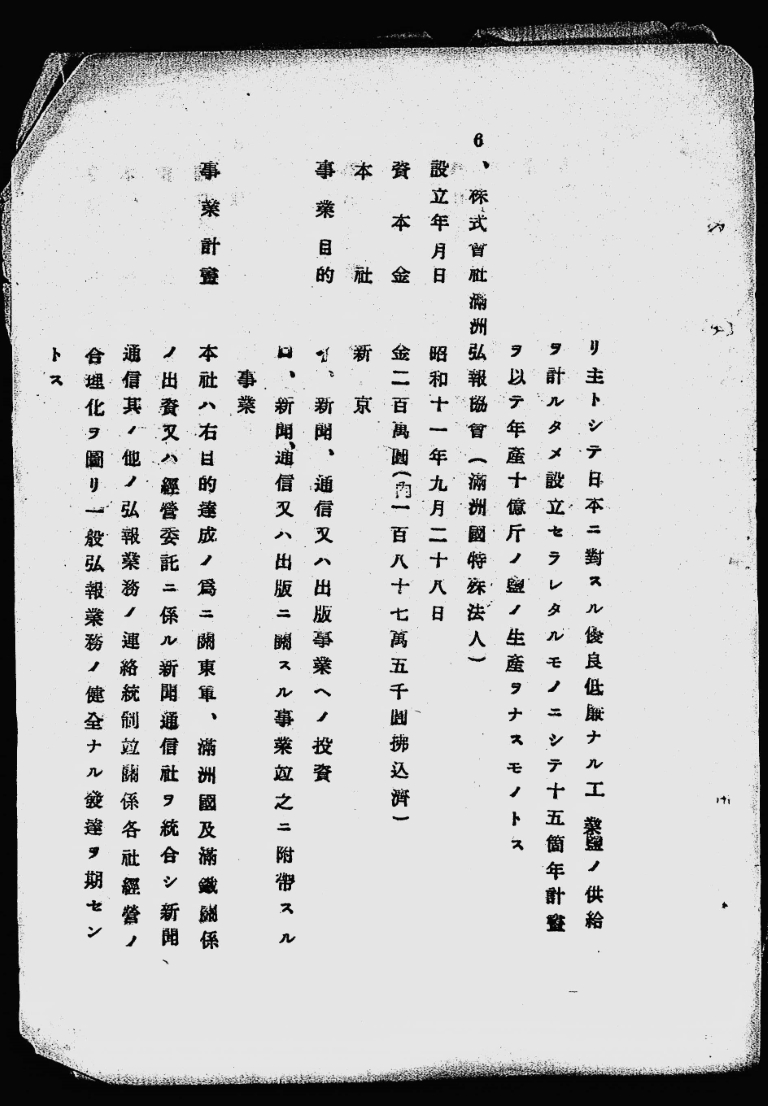 リ主トシテ日本ニ對スル優良低廉ナル工業鹽ノ供給
ヲ計ルタメ設立セラレタルモノニシテ十五箇年計畫
ヲ以テ年產十億斤ノ鹽ノ生產ヲナスモノトス
6、株式會社滿洲弘報協會(滿洲國特殊法人)
設立年月日 昭和十一年九月二十八日
資本金 金二百萬圓(內一百八十七萬五千圓拂込濟)
本社 新京
事業目的 イ、新聞、通信又ハ出版事業ヘノ投資
ロ、新聞、通信又ハ出版ニ關スル事業竝之ニ附帶スル
事業
事業計畫 本社ハ右目的達成ノ爲ニ關東軍、滿洲國及滿鐵關係
ノ出資又ハ經營委託ニ係ル新聞通信社ヲ統合シ新聞、
通信其ノ他ノ弘報業務ノ連絡統制竝關係各社經營ノ
合理化ヲ圖リ一般弘報業務ノ健全ナル發達ヲ期セン
トス